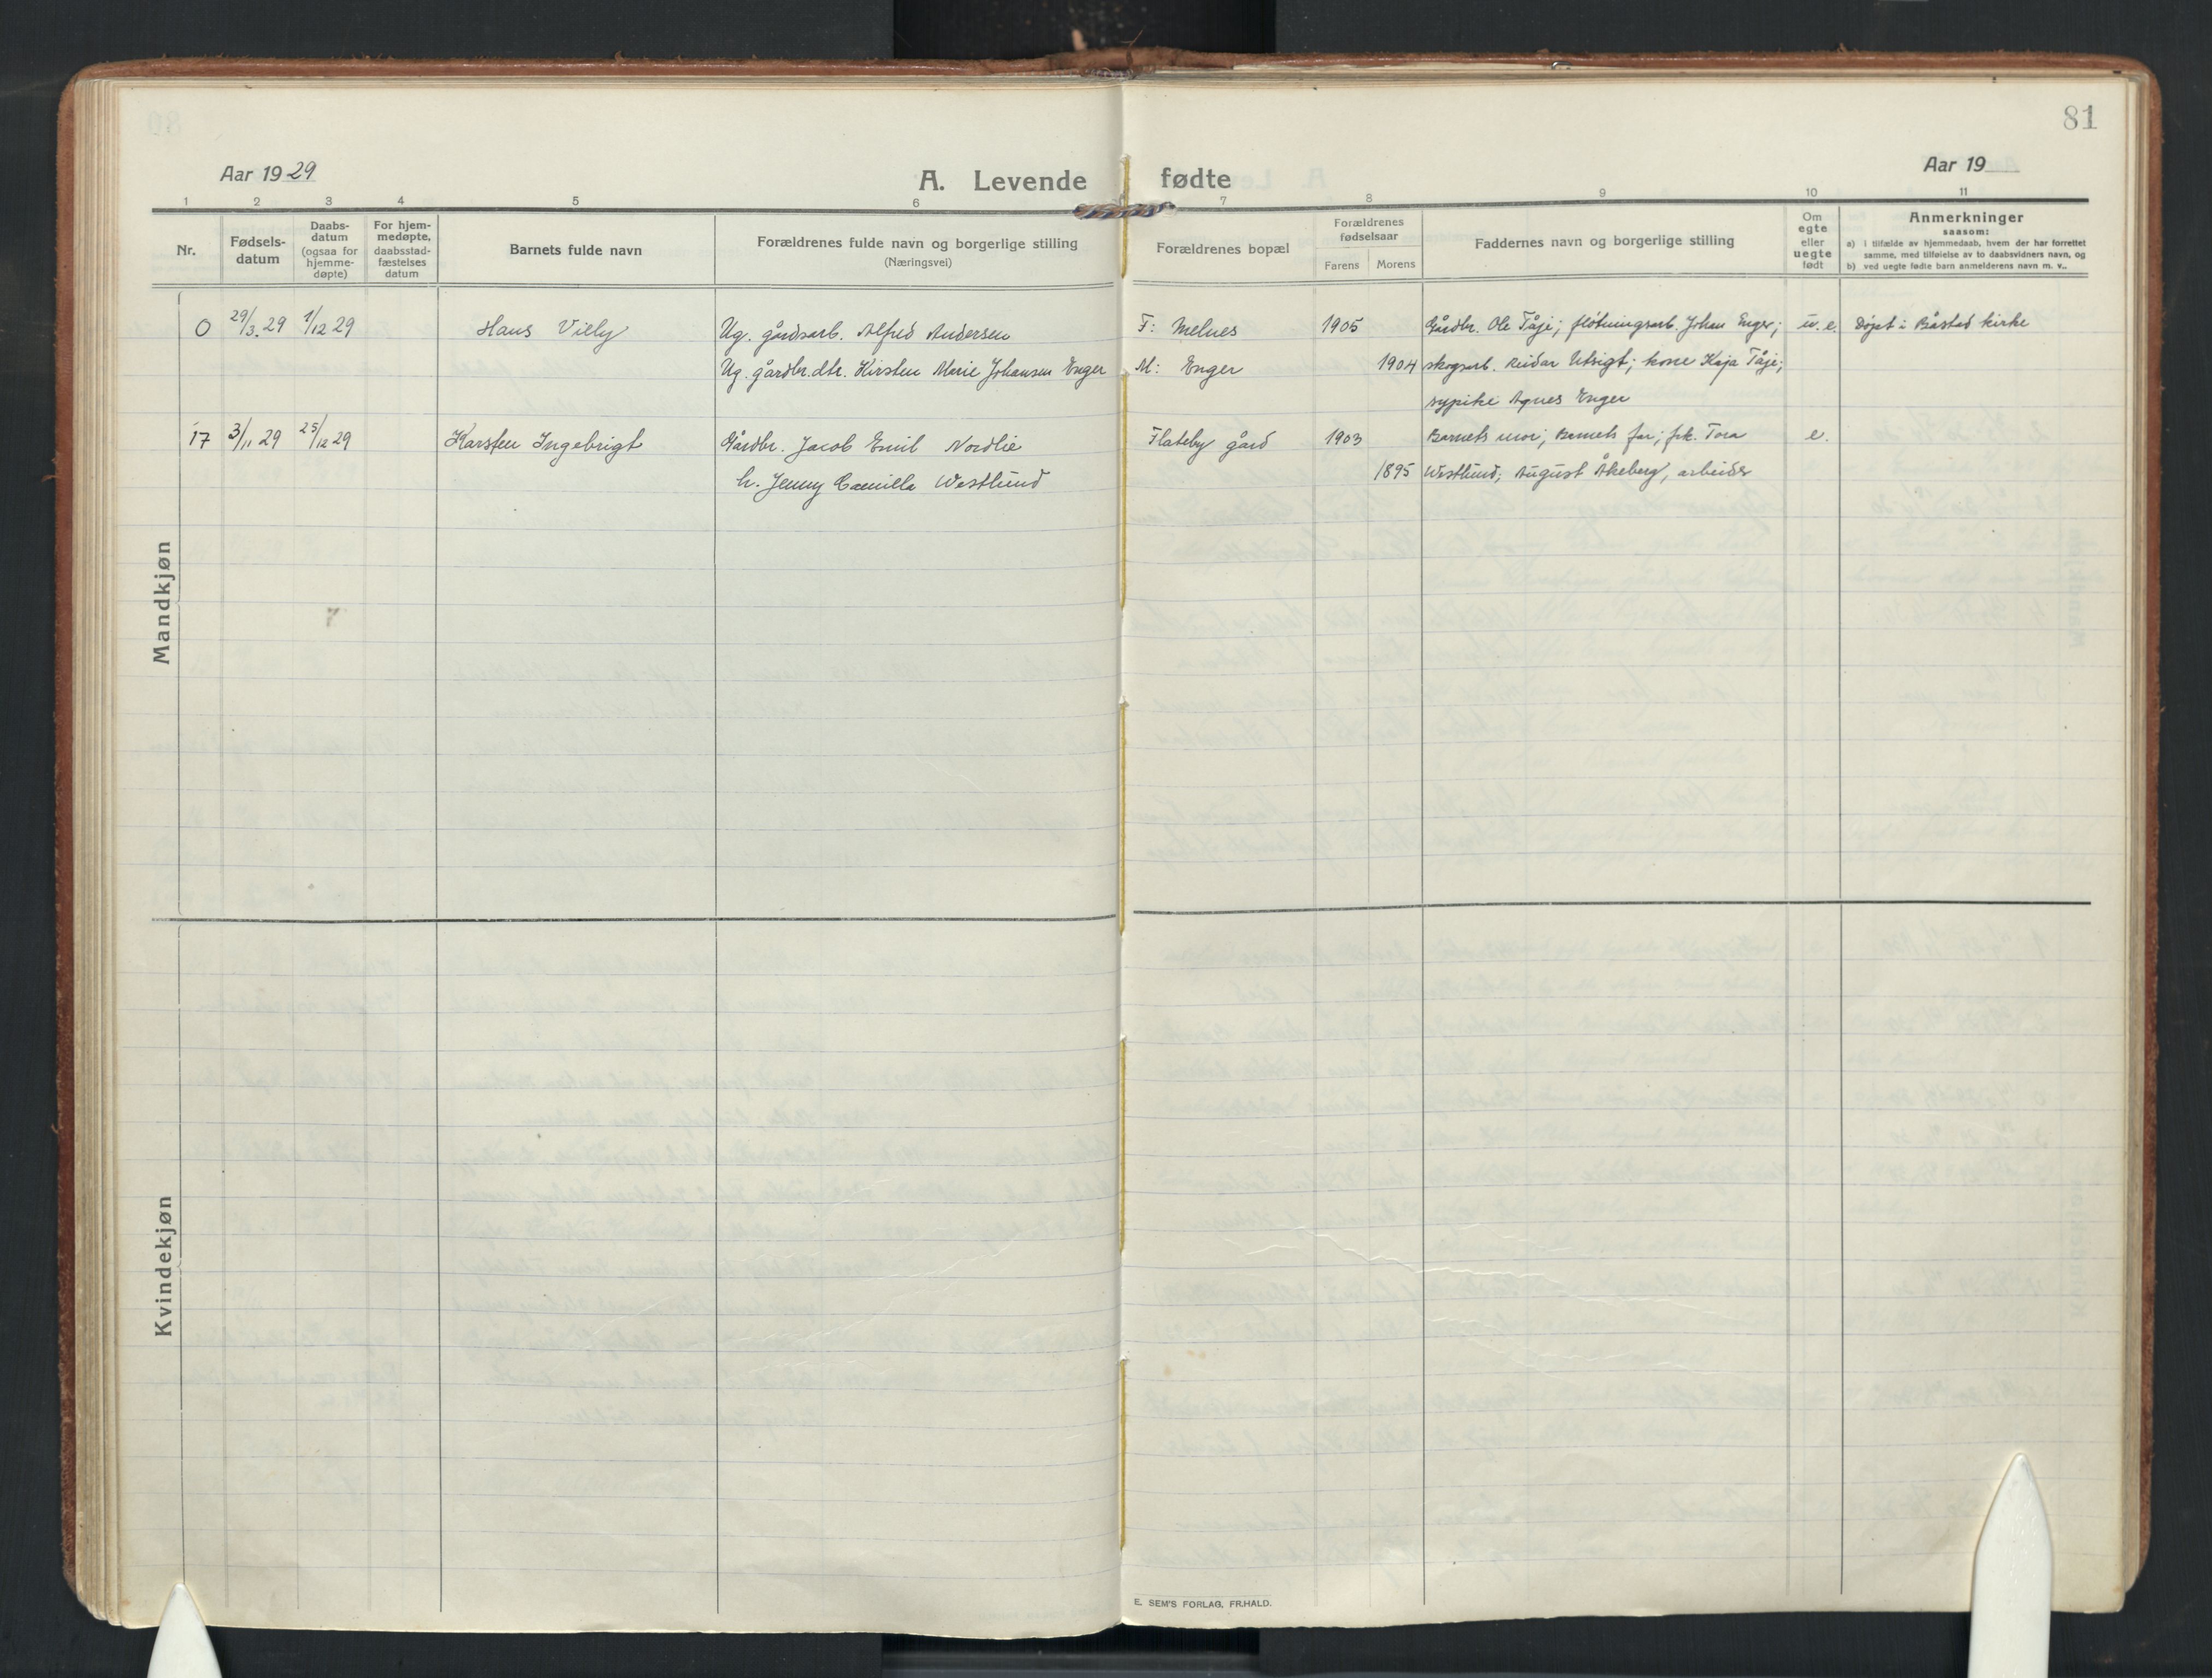 81
Aar 1929
A. Levende fødte
Aar 19
1 2 3 4 5 6 7 8 9 10 11
Nr.
Fødsels-
datum
Daabs-
datum
(ogsaa for
hjemme-
døpte)
For hjem-
medøpte,
daabsstad-
fæstelses
datum
Barnets fulde navn
Forældrenes fulde navn og borgerlige stilling
(Næringsvei)
Forældrenes bopæl
Forældrenes
fødselsaar
Farens Morens
Faddernes navn og borgerlige stilling
Om
egte
eller
uegte
født
Anmerkninger
saasom:
a) i tilfælde av hjemmedaab, hvem der har forrettet
samme, med tilføielse av to daabsvidners navn, og
b) ved uegte fødte barn anmelderens navn m. v..
Mandkjøn
0 29/3. 29 1/12 29 Hans Villy Ug. gårdsarb. Alfred Andersen F: Melnes 1905 Gårdbr. Ole Tåje; fløtningsarb. Johan Enger; u.e. Døpt i Båstad kirke
Ug. gårdbr.dtr. Kirsten Marie Johansen Enger M: Enger 1904 skogsarb. Reidar Utsigt; kone Kaja Tåje;
sypike Agnes Enger
17 3/11 29 25/12 29 Karsten Ingebrigt Gårdbr. Jacob Emil Nordlie Flateby gård 1903 Barnets mor; Barnets far; frk. Tora e.
h. Jenny Camilla Westlund 1895 Westlund; August Åkeberg, arbeider
Kvindekjøn
E. SEM'S FORLAG, FR.HALD.